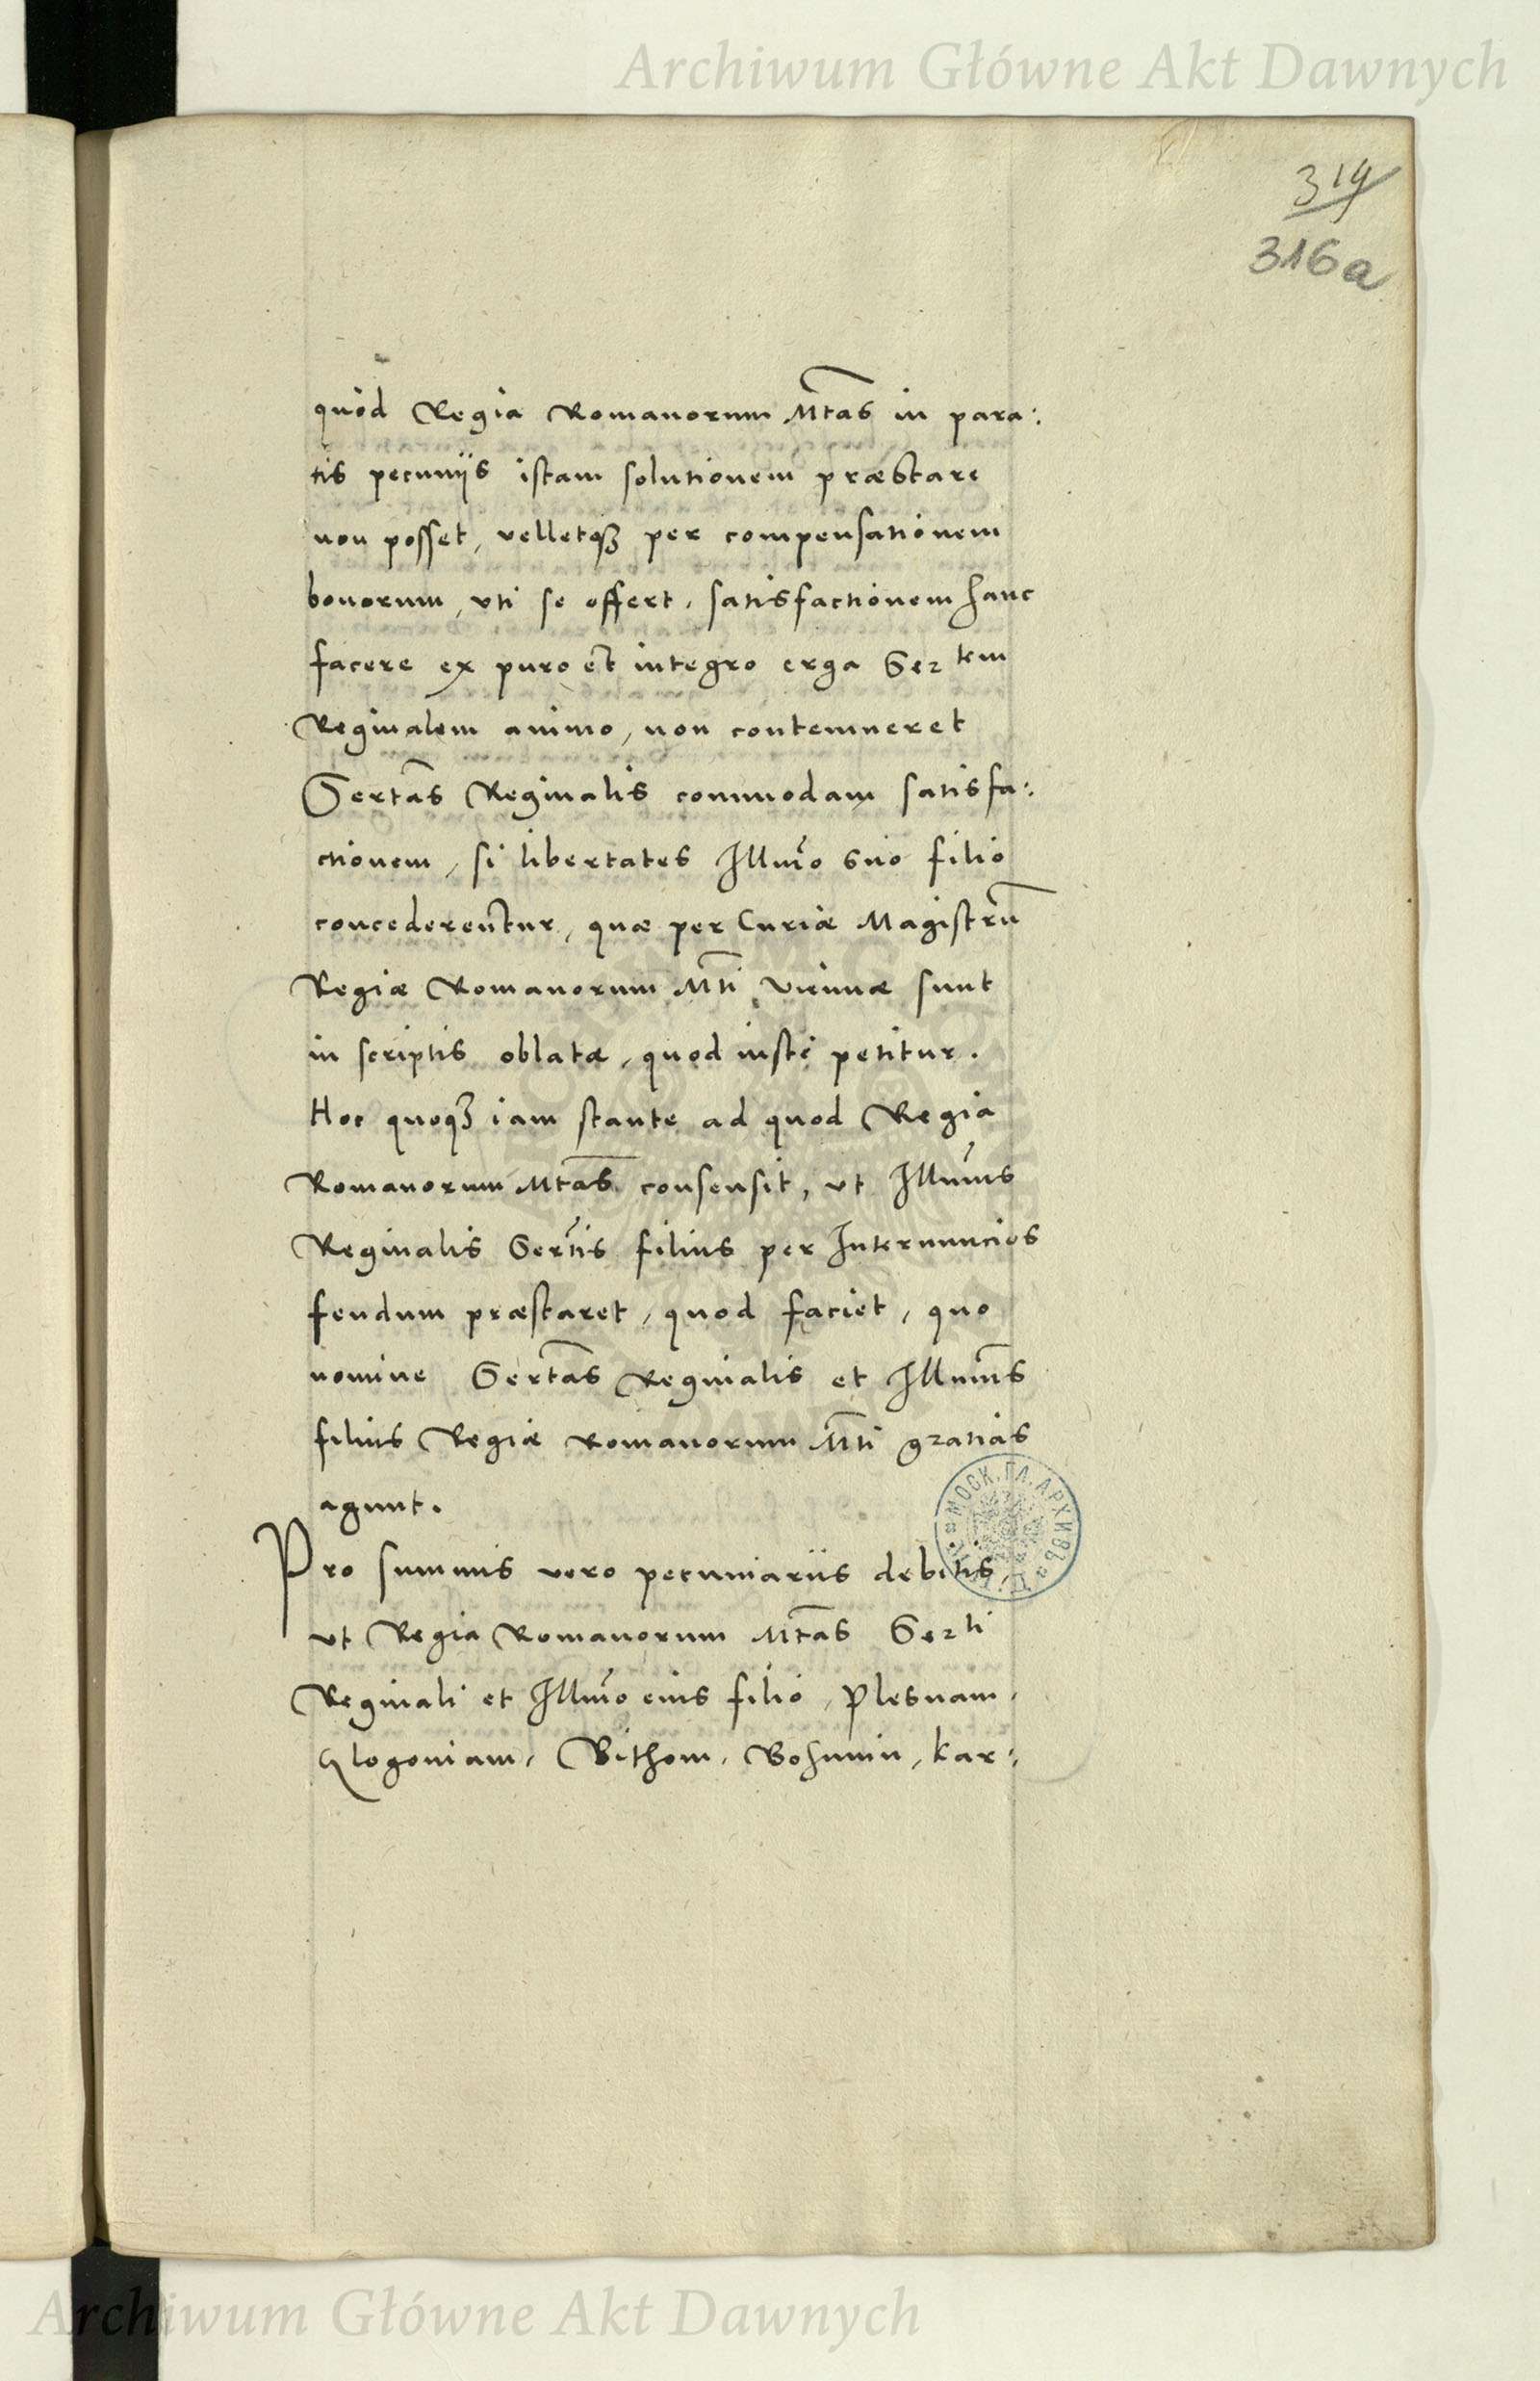 Archiwum Główne Akt Dawnych
319
316a
quod Regia Romanorum Mtas in para:
tis pecuniis istam solutionem præstare
non posset, velletqꝫ per compensationem
bonorum, uti se offert, satisfactionem hanc
facere ex puro et integro erga Sertem
Reginalem animo, non contemneret
Sertas Reginalis commodam satisfa:
ctionem, si libertates Illmo suo filio
concederentur, quæ per Curiæ Magistrū
Regiæ Romanorum Mti Viennæ sunt
in scriptis oblatæ, quod iuste petitur.
Hoc quoqꝫ iam stante ad quod Regia
Romanorum Mtas consensit, ut Illmus
Reginalis Sertis filius per Internuncios
feudum præstaret, quod faciet, quo
nomine Sertas Reginalis et Illmus
filius Regiæ Romanorum Mti gratias
agunt.
Pro summis vero pecuniariis debitis,
ut Regia Romanorum Mtas Serti
Reginali et Illmo eius filio, Plesnam,
Glogoniam, Bithom, Bohumin, Kar:
МОСК. ГЛ. АРХИВЪ
Archiwum Główne Akt Dawnych